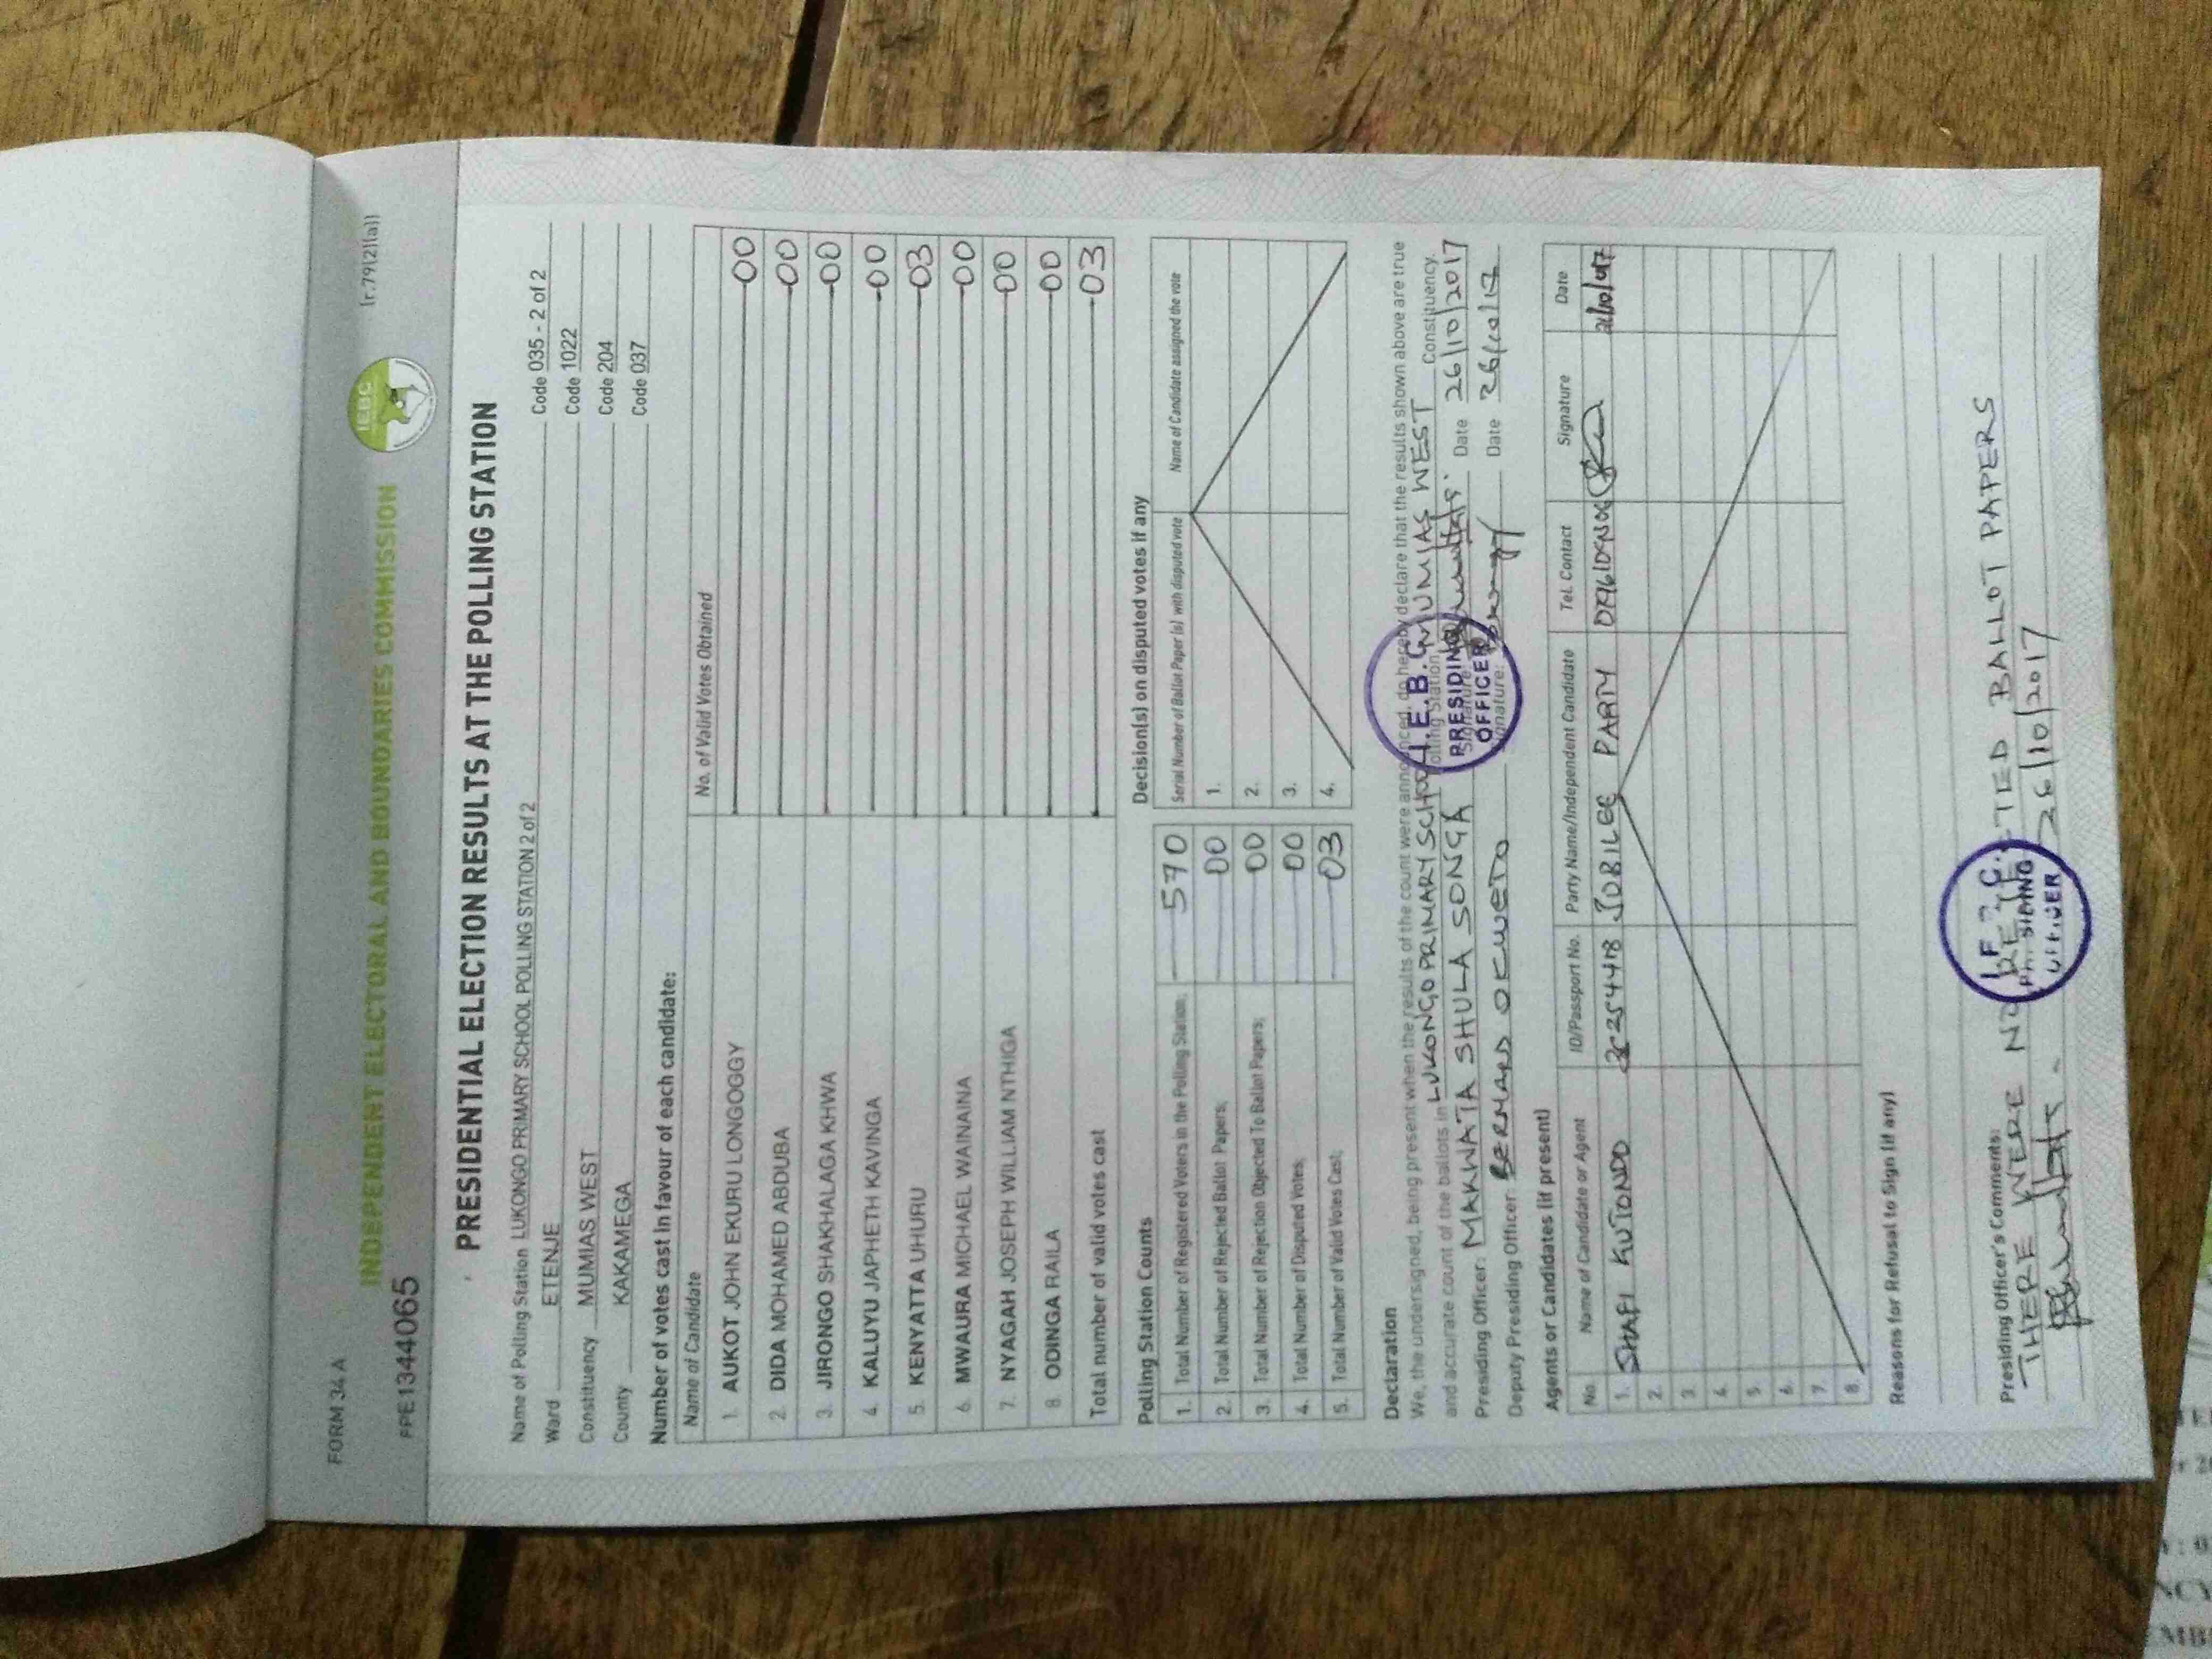 FORM 34 A
(r.79(2)(a))
INDEPENDENT ELECTORAL AND BOUNDARIES COMMISSION
IEBC
PPE1344065
PRESIDENTIAL ELECTION RESULTS AT THE POLLING STATION
Name of Polling Station LUKONGO PRIMARY SCHOOL POLLING STATION 2 of 2 Code 035 - 2 of 2
Ward ETENJE Code 1022
Constituency MUMIAS WEST Code 204
County KAKAMEGA Code 037
Number of votes cast in favour of each candidate:
Name of Candidate No. of Valid Votes Obtained
1. AUKOT JOHN EKURU LONGOGGY 00
2. DIDA MOHAMED ABDUBA 00
3. JIRONGO SHAKHALAGA KHWA 00
4. KALUYU JAPHETH KAVINGA 00
5. KENYATTA UHURU 03
6. MWAURA MICHAEL WAINAINA 00
7. NYAGAH JOSEPH WILLIAM NTHIGA 00
8. ODINGA RAILA 00
Total number of valid votes cast 03
Polling Station Counts
1. Total Number of Registered Voters in the Polling Station; 570
2. Total Number of Rejected Ballot Papers; 00
3. Total Number of Rejection Objected To Ballot Papers; 00
4. Total Number of Disputed Votes; 00
5. Total Number of Valid Votes Cast; 03
Decision(s) on disputed votes if any
Serial Number of Ballot Paper (s) with disputed vote Name of Candidate assigned the vote
1.
2.
3.
4.
Declaration
We, the undersigned, being present when the results of the count were announced, do hereby declare that the results shown above are true
and accurate count of the ballots in LUKONGO PRIMARY SCHOOL Polling Station, MUMIAS WEST Constituency.
Presiding Officer: MAKWATA SHULA SONGA Signature: Date 26/10/2017
Deputy Presiding Officer: BERNARD OKWETO Signature: Date 26/10/17
I.E.B.C
PRESIDING
OFFICER
Agents or Candidates (if present)
No. Name of Candidate or Agent ID/Passport No. Party Name/Independent Candidate Tel. Contact Signature Date
1. SHAFI KUTONDO JUBILEE PARTY
2.
3.
4.
5.
6.
7.
8.
Reasons for Refusal to Sign (if any)
Presiding Officer's Comments:
THERE WERE NO REJECTED BALLOT PAPERS
26/10/2017